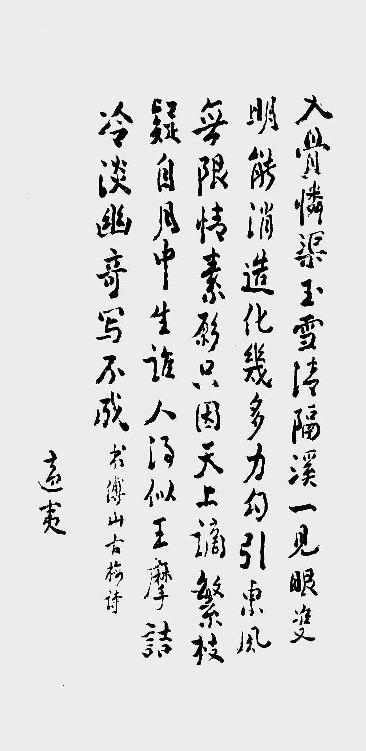 入骨憐渠玉雪清隔溪一見眼雙
明能消造化幾多力勾引東風
無限情素影只因天上謫繁枝
疑自月中生誰人得似王摩詰
冷淡幽奇写不成
书傅山古梅诗
适夷